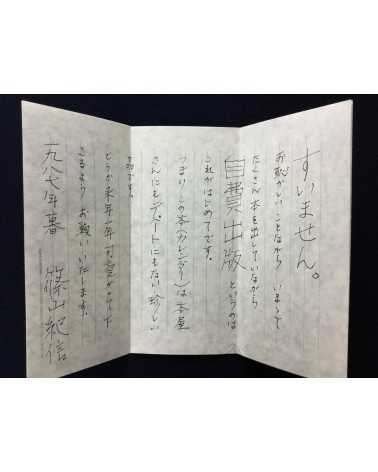 すいません。
お恥かしいことながら いままで
たくさん本を出していながら
自費出版 というのは
これがはじめてです。
つまり、この本(カレンダー)は本屋
さんにもデパートにもない珍しい
物です。
どうか来年一年 可愛がって下
さるよう お願いいたします。
一九八七年暮 篠山紀信